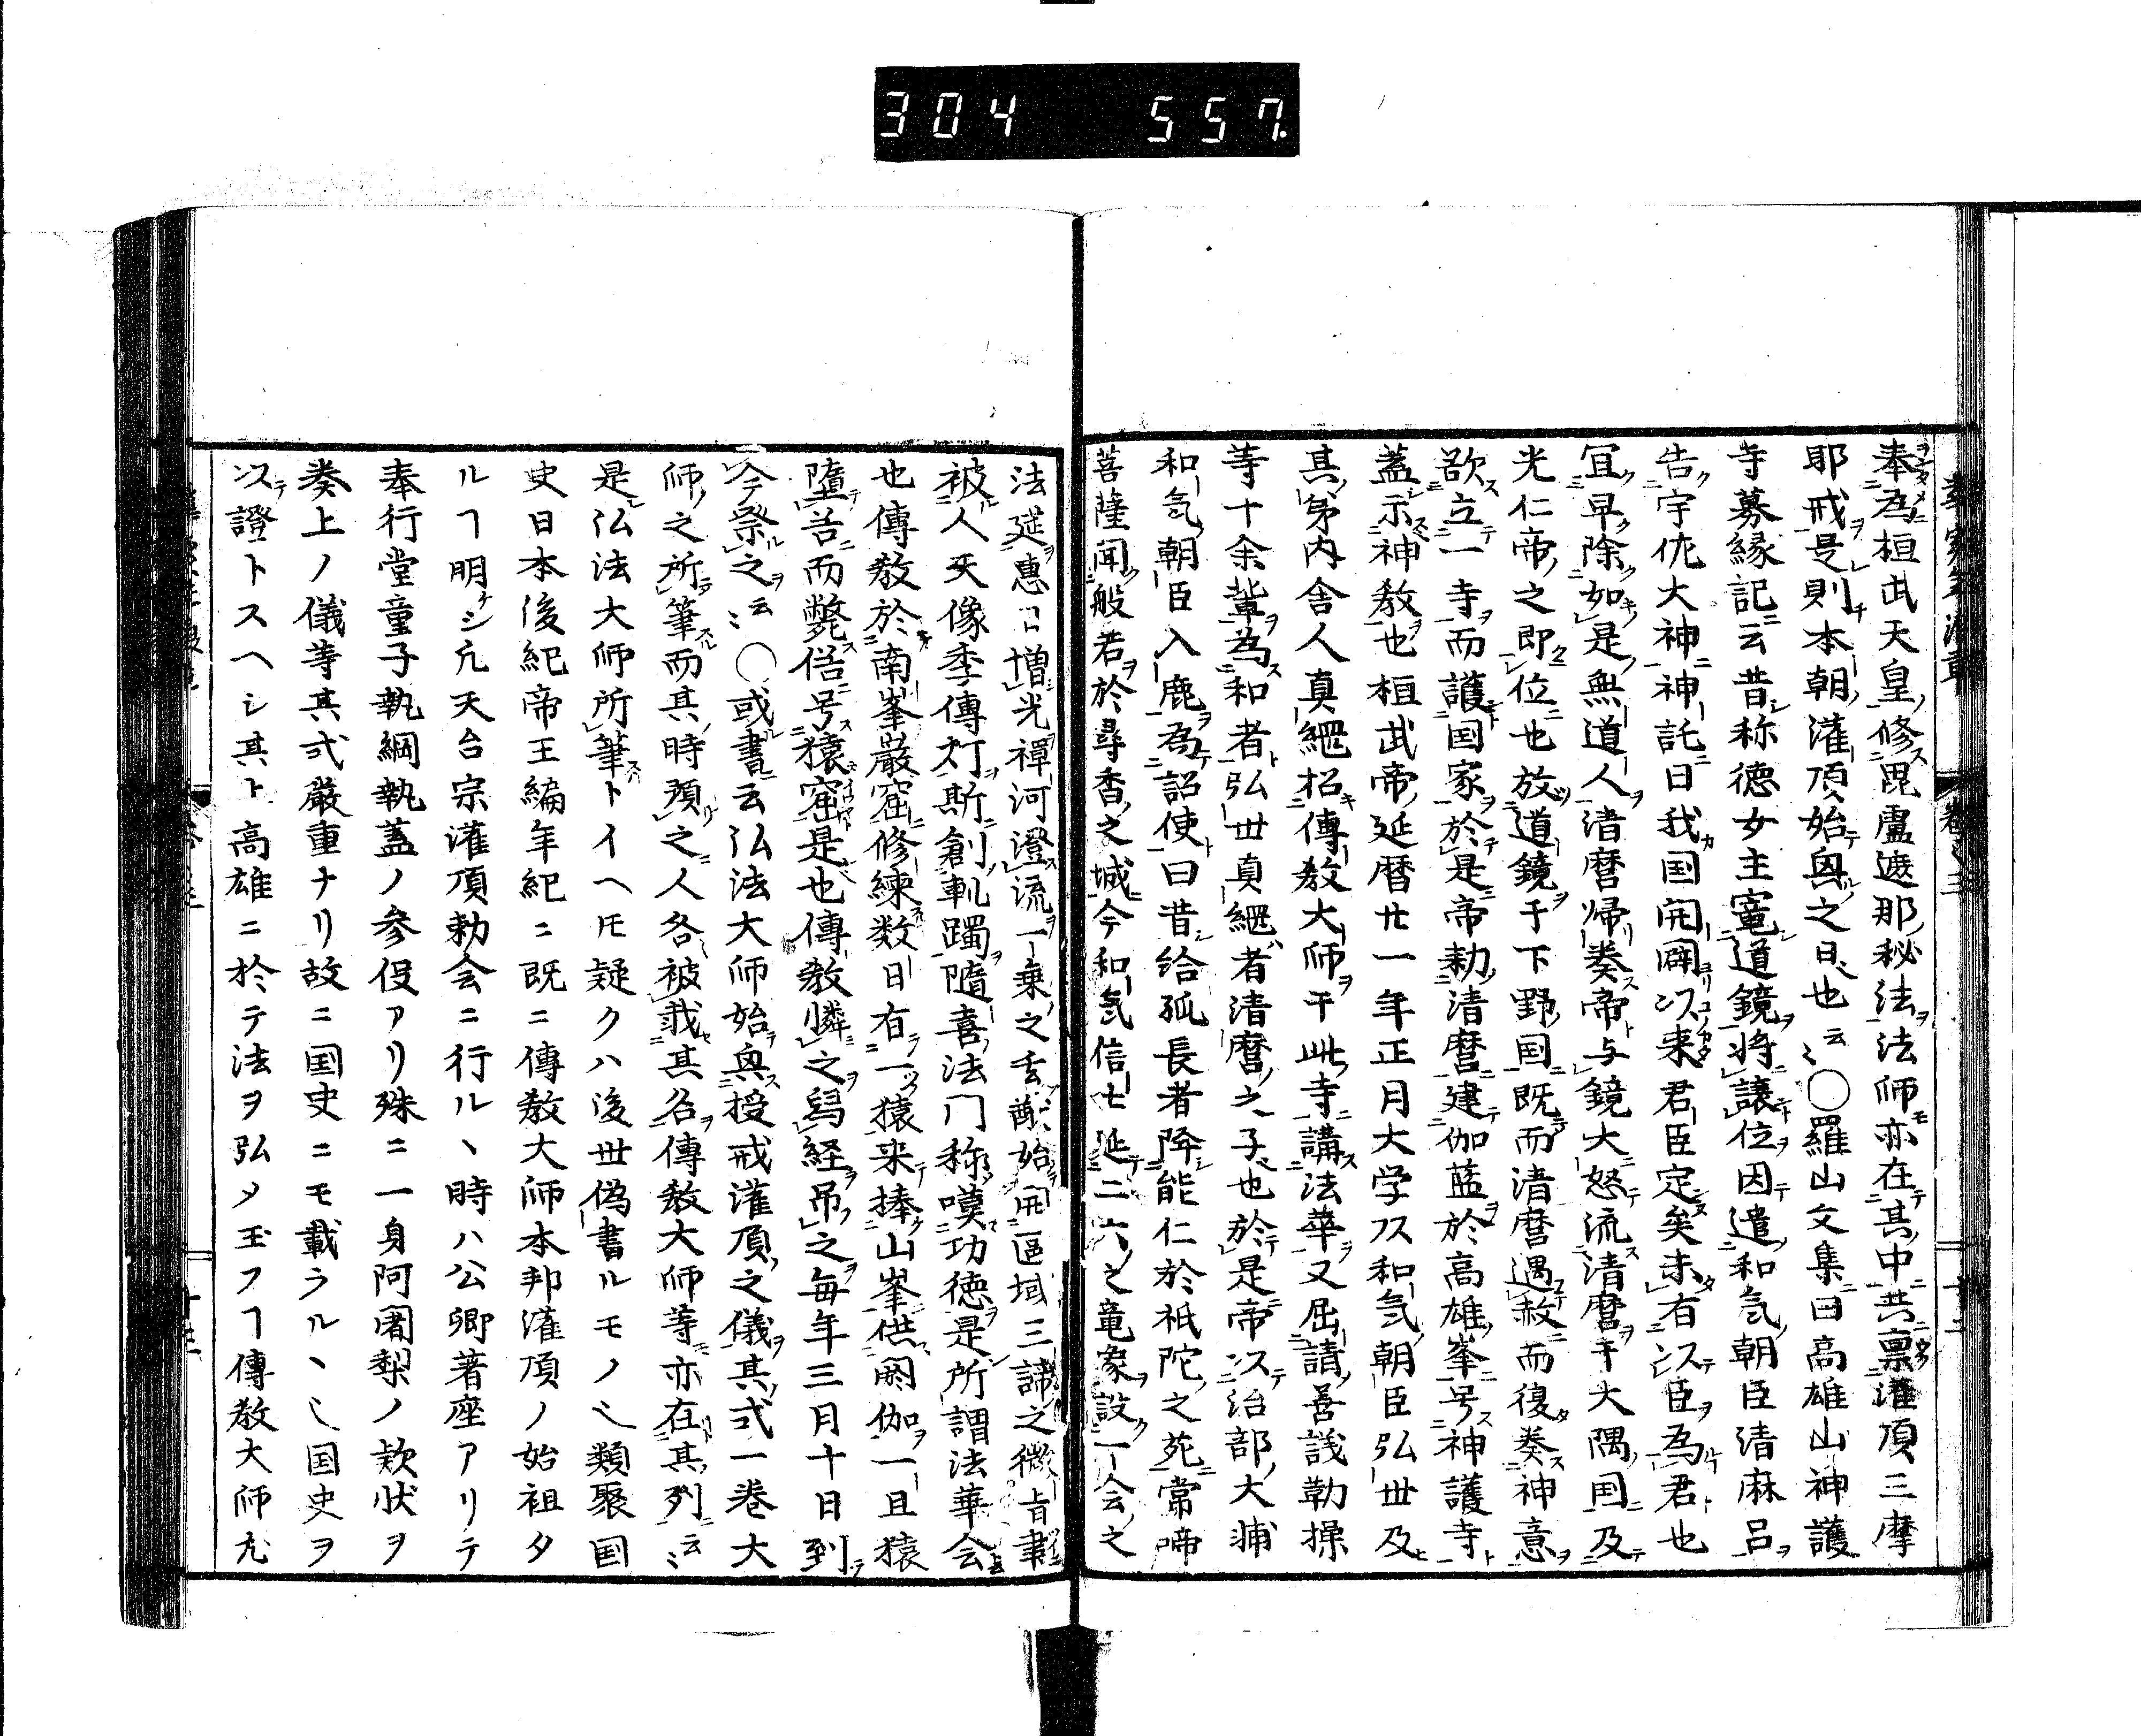 304 557
奉為桓武天皇修毘盧遮那秘法法師亦在其中共禀灌頂三摩
耶戒是則本朝灌頂始興之日也云〻〇羅山文集曰高雄山神護
寺募縁記云昔称徳女主寵道鏡将譲位因遣和気朝臣清麻呂
告宇佐大神神託曰我国開闢以来君臣定矣未有以臣為君也
宜早除如是無道人清麿帰奏帝与鏡大怒流清麿于大隅国及
光仁帝之即位也放道鏡于下野国既而清麿遇赦而復奏神意
欲立一寺而護国家於是帝勅清麿建伽藍於高雄峯号神護寺
蓋示神教也桓武帝延暦廿一年正月大学頭和気朝臣弘世及
其弟内舎人真綱招傳教大師于此寺講法華又屈請善議勤操
等十余輩為和者弘世真綱者清麿之子也於是帝以治部大輔
和気朝臣入鹿為詔使曰昔給孤長者降能仁於祇陀之苑常啼
菩薩聞般若於尋香之城今和気信士延二六之竜象設一会之
法筵惠日増光禪河澄流一乗之玄猷始開區域三諦之微旨聿
被人天像季傳灯斯創軌躅隨喜法門称嘆功徳是所謂法華会
也傳教於南峯巌窟修練数日有一猿来捧山峯供閼伽一旦猿
墮谷而斃俗号猿窟是也傳教憐之写経吊之毎年三月十日到
今祭之云〻〇或書云弘法大師始興授戒灌頂之儀其式一巻大
師之所筆而其時預之人各被載其名傳教大師等亦在其列云〻
是弘法大師所筆トイヘモ疑クハ後世偽書ルモノ也類聚国
史日本後紀帝王編年紀ニ既ニ傳教大師本邦灌頂ノ始祖タ
ルヿ明ケシ凡天台宗灌頂勅会ニ行ルヽ時ハ公卿著座アリテ
奉行堂童子執綱執蓋ノ参役アリ殊ニ一身阿闍梨ノ款状ヲ
奏上ノ儀等其式厳重ナリ故ニ国史ニモ載ラルヽ也国史ヲ
以テ證トスヘシ其上高雄ニ於テ法ヲ弘メ玉フヿ傳教大師尤